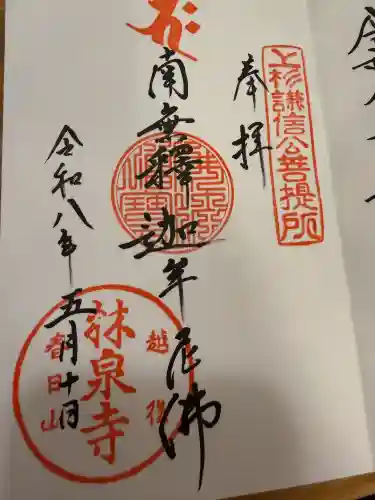 上杉謙信公菩提所
奉拝
南無釋迦牟尼佛
令和八年五月十日
林泉寺
越後
春日山